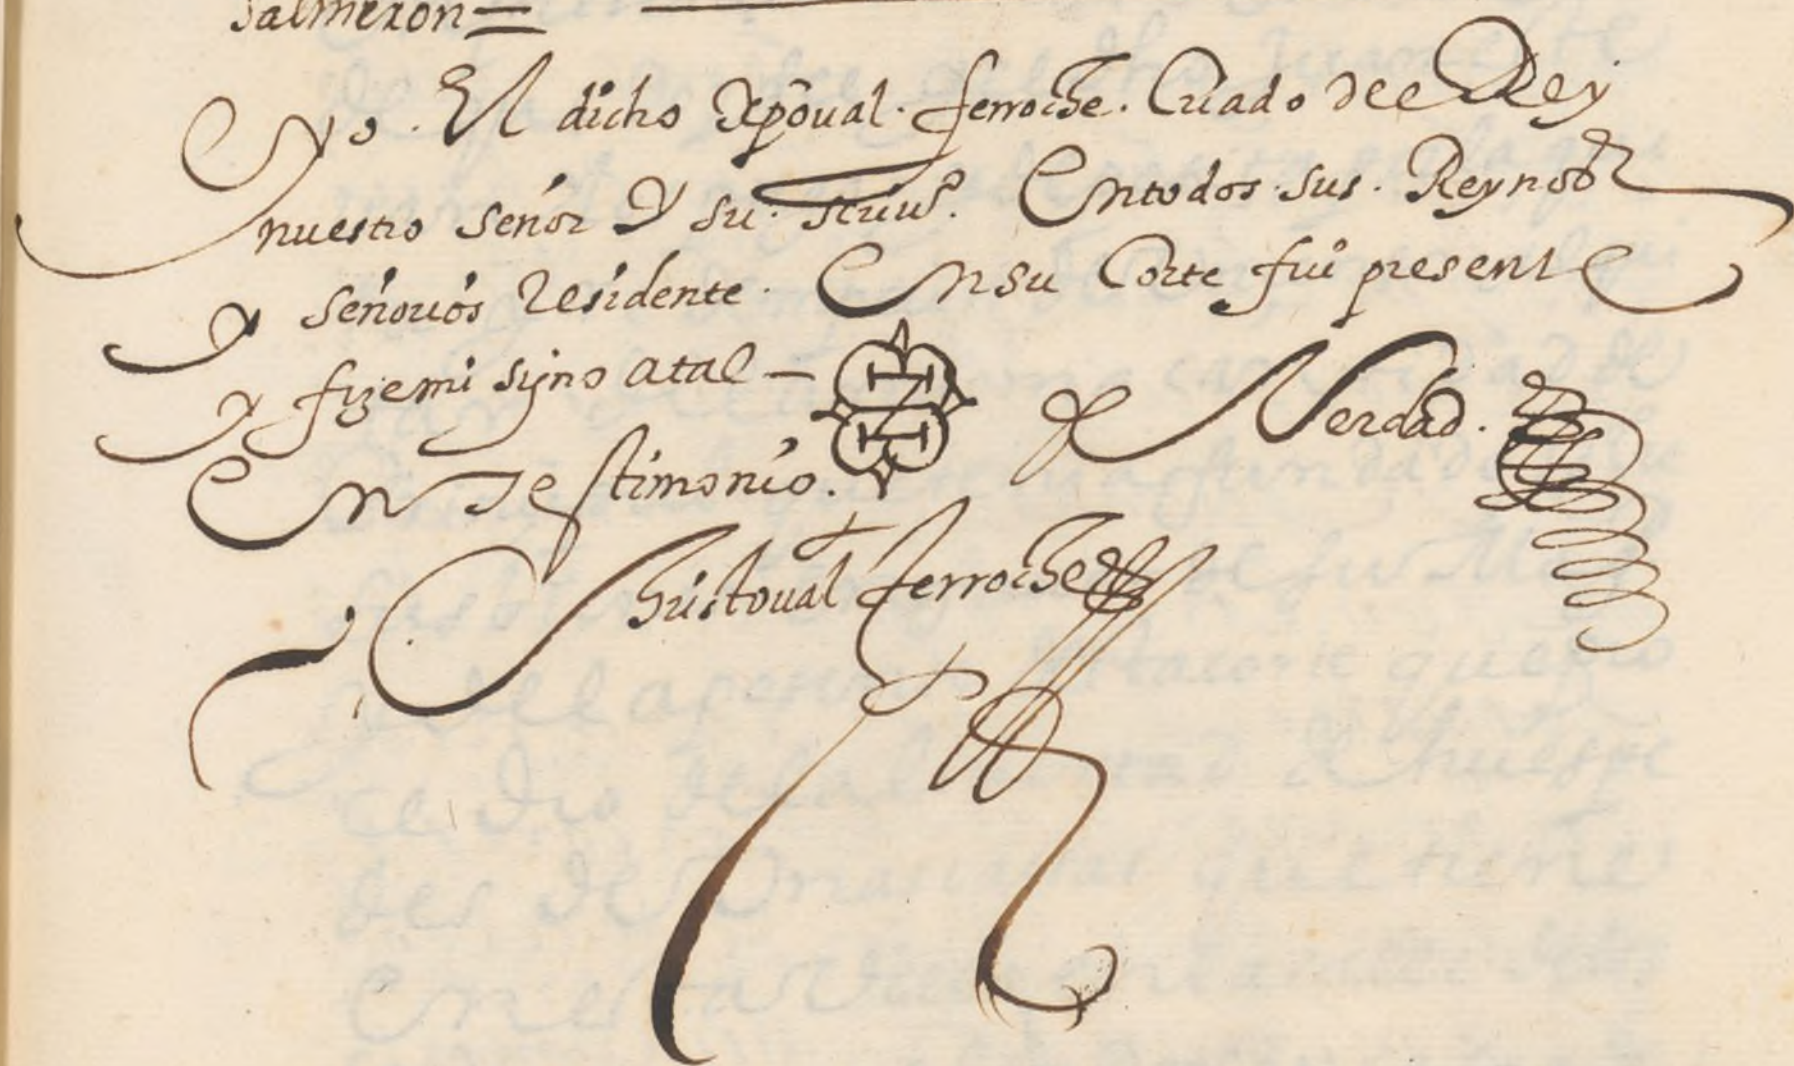 Salmeron =
yo. El dicho Xpōual. ferroche. Criado del Rey
nuestro señor y su. scriuo. En todos sus. Reynos
y señorios Residente. En su Corte fui presente
y fize mi signo atal —
En Testimonio. de Verdad.
Christoual ferroche